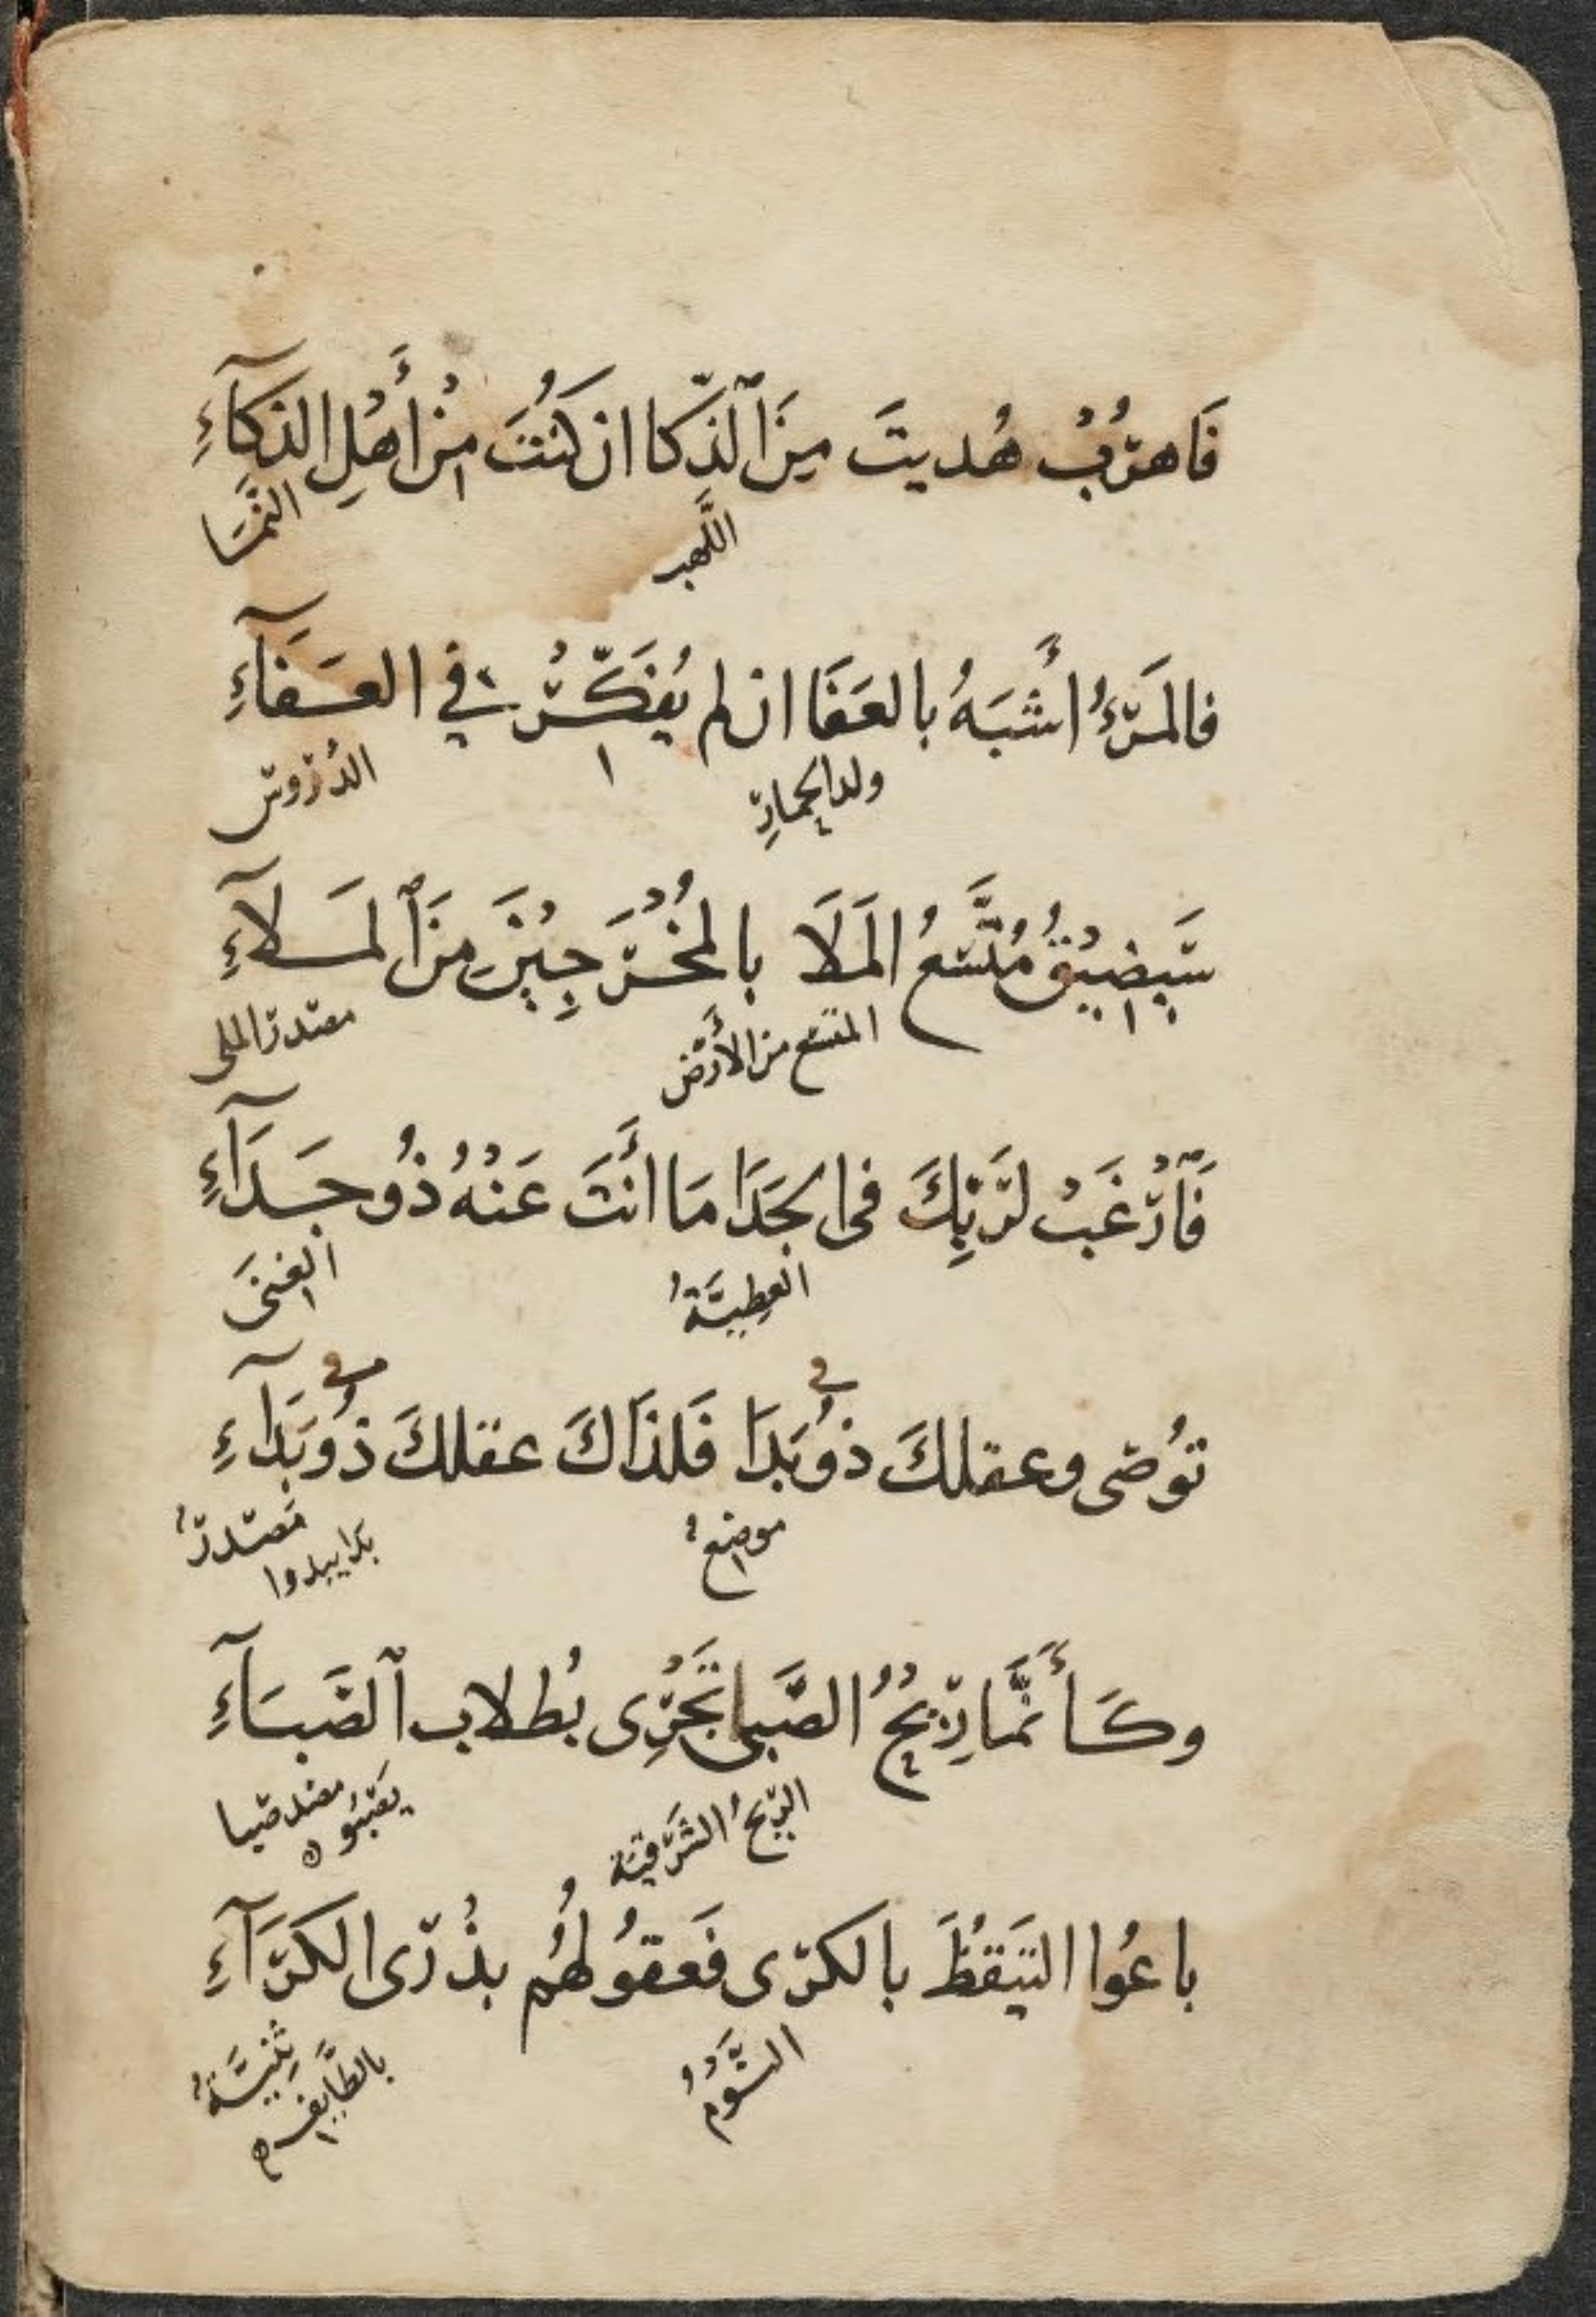 فَاهرُبْ هُديتَ مِنَ ٱلذَّكا ان كنْتَ مِنْ أَهْلِ الذكَآءِ
اللَّهب النَّمَا
فالمَرءُ أشْبَهُ بالعَفَا ان لم يُفَكِّرْ في العَفَآءِ
ولد الحمارِ الدُرُوسُ
سَيَضِيْقُ مُتَّسَعُ المَلَا بالمُخْرَجِيْنَ مِنَ ٱلمَلآءِ
المتسع من الأَرْض مصدر الملى
فَٱرْغَبْ لرَبِكَ في الجَدَا مَا أنْتَ عَنْهُ ذُو جَدَآءِ
العطِيَّةُ الغِنَى
تُوصى وعقلكَ ذو بَدَا فَلذَاكَ عقلكَ ذُو بَدَآءِ
في في
موضعُ مَصْدرُ
بدا يبدوا
وكَأَنَّمَا رِيْحُ الصَّبى تَجْرِى بُطلاب ٱلصَبَآءِ
الرّيحُ الشَّرْقية مصدر صَبَا
يَصْبُو ه
باعُوا التيَقُظَ بالكرَى فَعقُولهُم بذُرَى الكرَآءِ
النَّوْمُ ثنِيَّةُ
بالطَّايِف ه